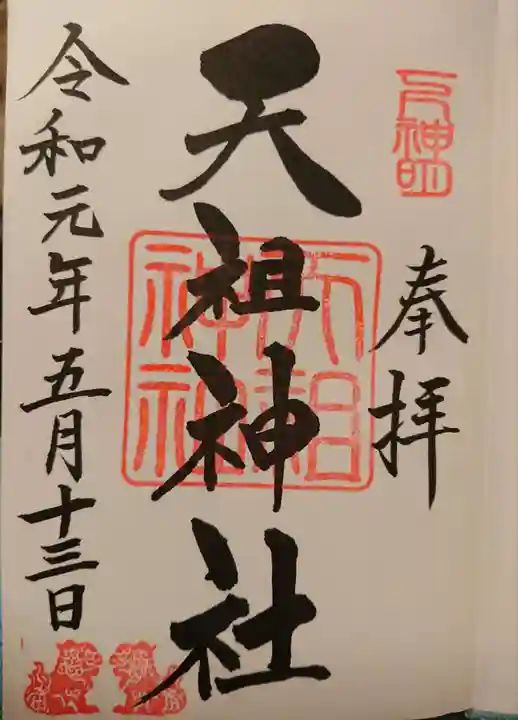 奉拝
天祖神社
天祖神社
令和元年五月十三日